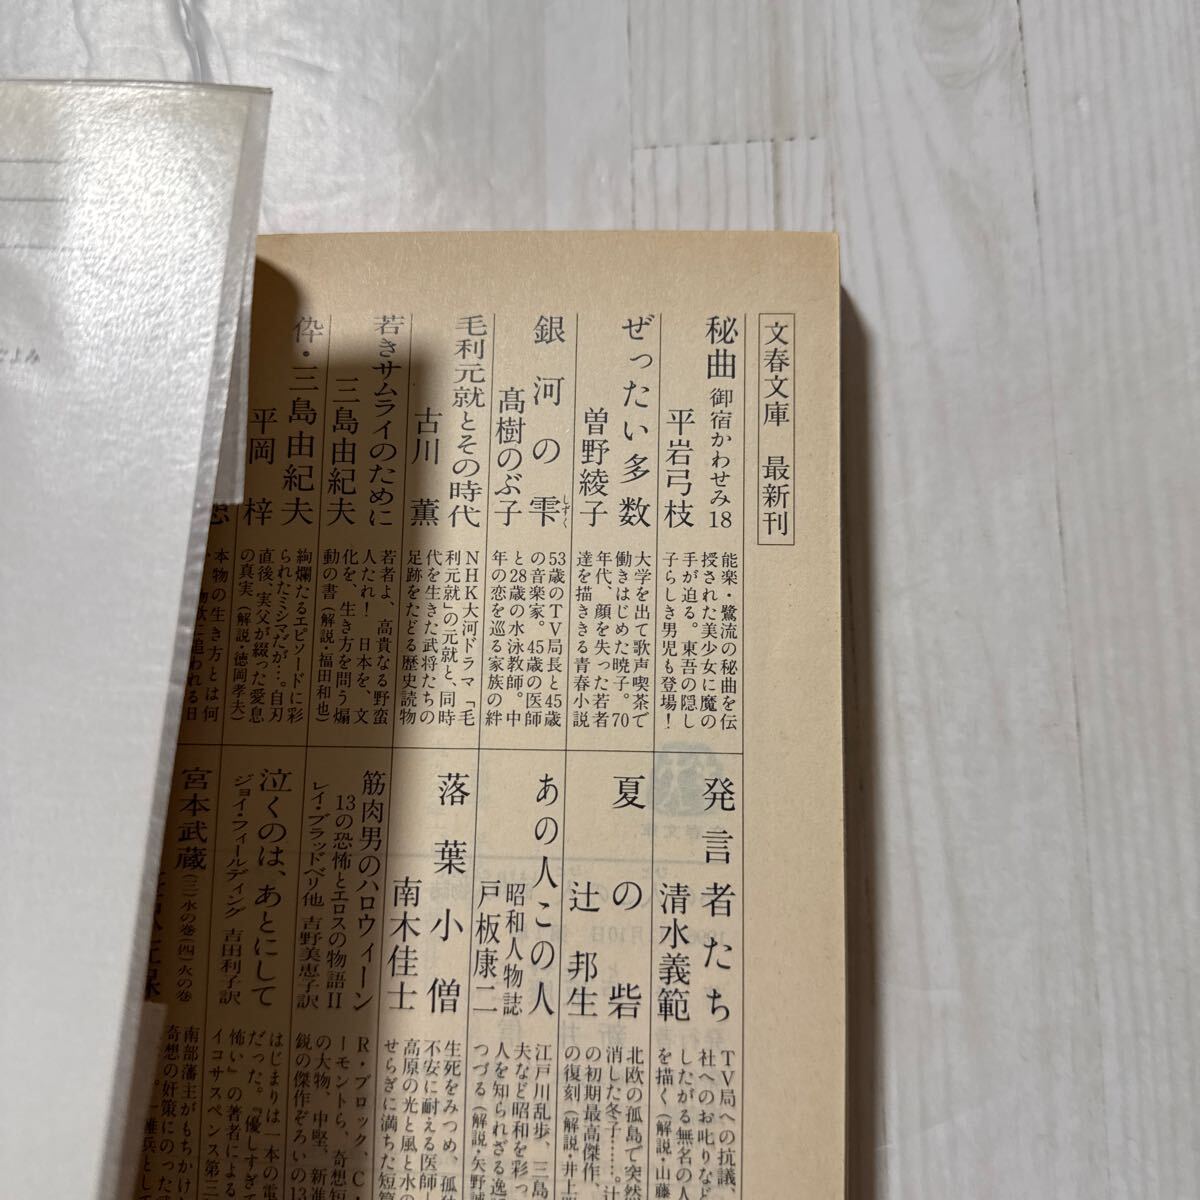 文春文庫 最新刊
秘曲 御宿かわせみ18
平岩弓枝
能楽・鷺流の秘曲を伝
授された美少女に魔の
手が迫る。東吾の隠し
子らしき男児も登場！
ぜったい多数
曽野綾子
大学を出て歌声喫茶で
働きはじめた暁子。70
年代、顔を失った若者
達を描ききる青春小説
銀河の雫
しずく
髙樹のぶ子
53歳のTV局長と45歳
の音楽家。45歳の医師
と28歳の水泳教師。中
年の恋を巡る家族の絆
毛利元就とその時代
古川薫
NHK大河ドラマ「毛
利元就」の元就と、同時
代を生きた武将たちの
足跡をたどる歴史読物
若きサムライのために
三島由紀夫
若者よ、高貴なる野蛮
人たれ！ 日本を、文
化を、生き方を問う煽
動の書（解説・福田和也）
伜・三島由紀夫
平岡梓
絢爛たるエピソードに彩
られたミシマだが…。自刃
直後、実父が綴った愛息
の真実（解説・徳岡孝夫）
本物の生き方とは何
発言者たち
清水義範
TV局への抗議、
社へのお叱りなど
したがる無名の人
を描く（解説・山藤
夏の砦
辻邦生
北欧の孤島で突然
消した冬子……。辻
の初期最高傑作、
の復刻（解説・井上
あの人この人
昭和人物誌
戸板康二
江戸川乱歩、三島
夫など昭和を彩っ
人を知られざる逸
つづる（解説・矢野誠
落葉小僧
南木佳士
生死をみつめ、孤独
不安に耐える医師
高原の光と風と水の
せらぎに満ちた短篇
筋肉男のハロウィーン
13の恐怖とエロスの物語II
レイ・ブラッドベリ他 吉野美恵子訳
R・ブロック、C・
ーモントら、奇想短
の大物、中堅、新進
鋭の傑作ぞろいの13
泣くのは、あとにして
ジョイ・フィールディング 吉田利子訳
はじまりは一本の電
だった。『優しすぎて
怖い』の著者による
イコサスペンス第三
宮本武蔵（三）水の巻（四）火の巻
南部藩主がもちかけ
奇想の奸策にのった武